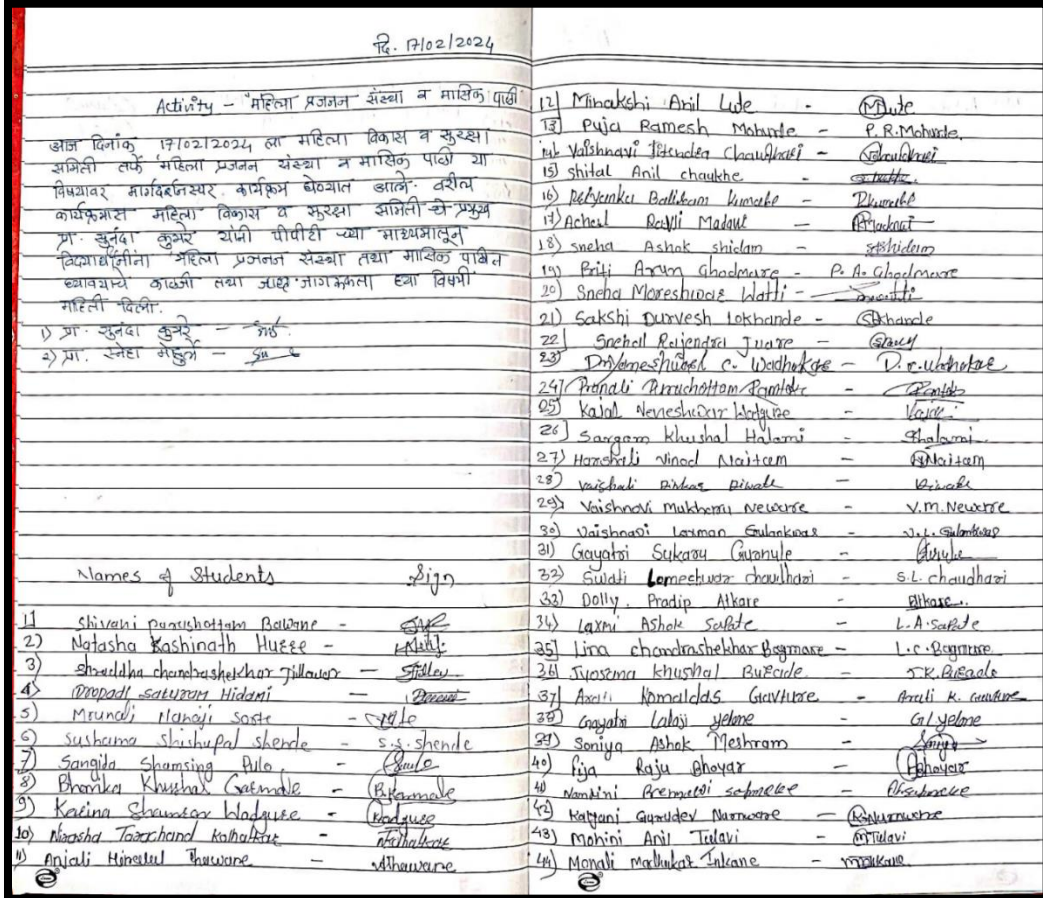 दि. 17/02/2024
Activity - "महिला प्रजनन संस्था व मासिक पाळी
आज दिनांक 17/02/2024 ला महिला विकास व सुरक्षा
समिती तर्फे महिला प्रजनन संस्था व मासिक पाळी या
विषयावर मार्गदर्शनपर कार्यक्रम घेण्यात आले. वरील
कार्यक्रमास महिला विकास व सुरक्षा समिती चे प्रमुख
प्रा. सुनंदा कुमरे यांनी पीपीटी च्या माध्यमातून
विद्यार्थीनींना महिला प्रजनन संस्था तथा मासिक पाळीत
घ्यावयाचे काळजी तथा जागरूकता ह्या विषयी
माहिती दिली.
1) प्रा. सुनंदा कुमरे -
2) प्रा. स्नेहा -
Names of Students Sign
1) Shivani Purushottam Bawane -
2) Natasha Kashinath -
3) Shraddha Chandrashekhar -
4) Dropadi Saturam Hidami
5) Mrunali Nanaji Sorte -
6) Sushama Shishupal Shende - S.S. Shende
7) Sangida Shamsing Pulo -
8) Bhumika Khushal -
9) Karina Shankar Wadguse -
10) Tarachand Kolhatkar -
11) Anjali Thaware - Athaware
12) Minakshi Anil Lute -
13) Puja Ramesh Mohurle - P.R. Mohurle.
14) Vaishnavi Jitendra Chaudhari -
15) Shital Anil chaukhe -
16) Kumabe -
17) Achal Madavi -
18) Sneha Ashok shidam - Sshidam
19) Priti Arun Ghodmare - P. A. Ghodmare
20) Sneha Moreshwar Watti -
21) Sakshi Durvesh Lokhande -
22) Snehal Rajendra Juare -
23) Dnyameshwari C. Wadhakar -
24) Pranali Purushottam -
25) Kajal -
26) Sargam Khushal Halami -
27) Harshali Vinod Naitam - Naitam
28) Vaishali Dinkar Diwate -
29) Vaishnavi Neware - V.M. Neware
30) Vaishnavi Laxman Gulankwar -
31) Gayatri Sukaru Gurnule -
32) Swati Lomeshwar chaudhari - S.L. chaudhari
33) Dolly. Pradip Atkare - Atkare..
34) Laxmi Ashok Sapate - L.A. Sapate
35) Lina chandrashekhar Bagmare - L.C. Bagmare
36) Jyosana Khushal -
37) Arati Komaldas Gavture - Arati K. Gavture
38) Gayatri Lalaji Yelone - G L Yelone
39) Soniya Ashok Meshram -
40) Raju Bhoyar - Bhoyar
41) Nandini -
42) Katyani Gurudev Narnware -
43) Mohini Anil Tulavi - MTulavi
44) Monali Madhukar Inkane -